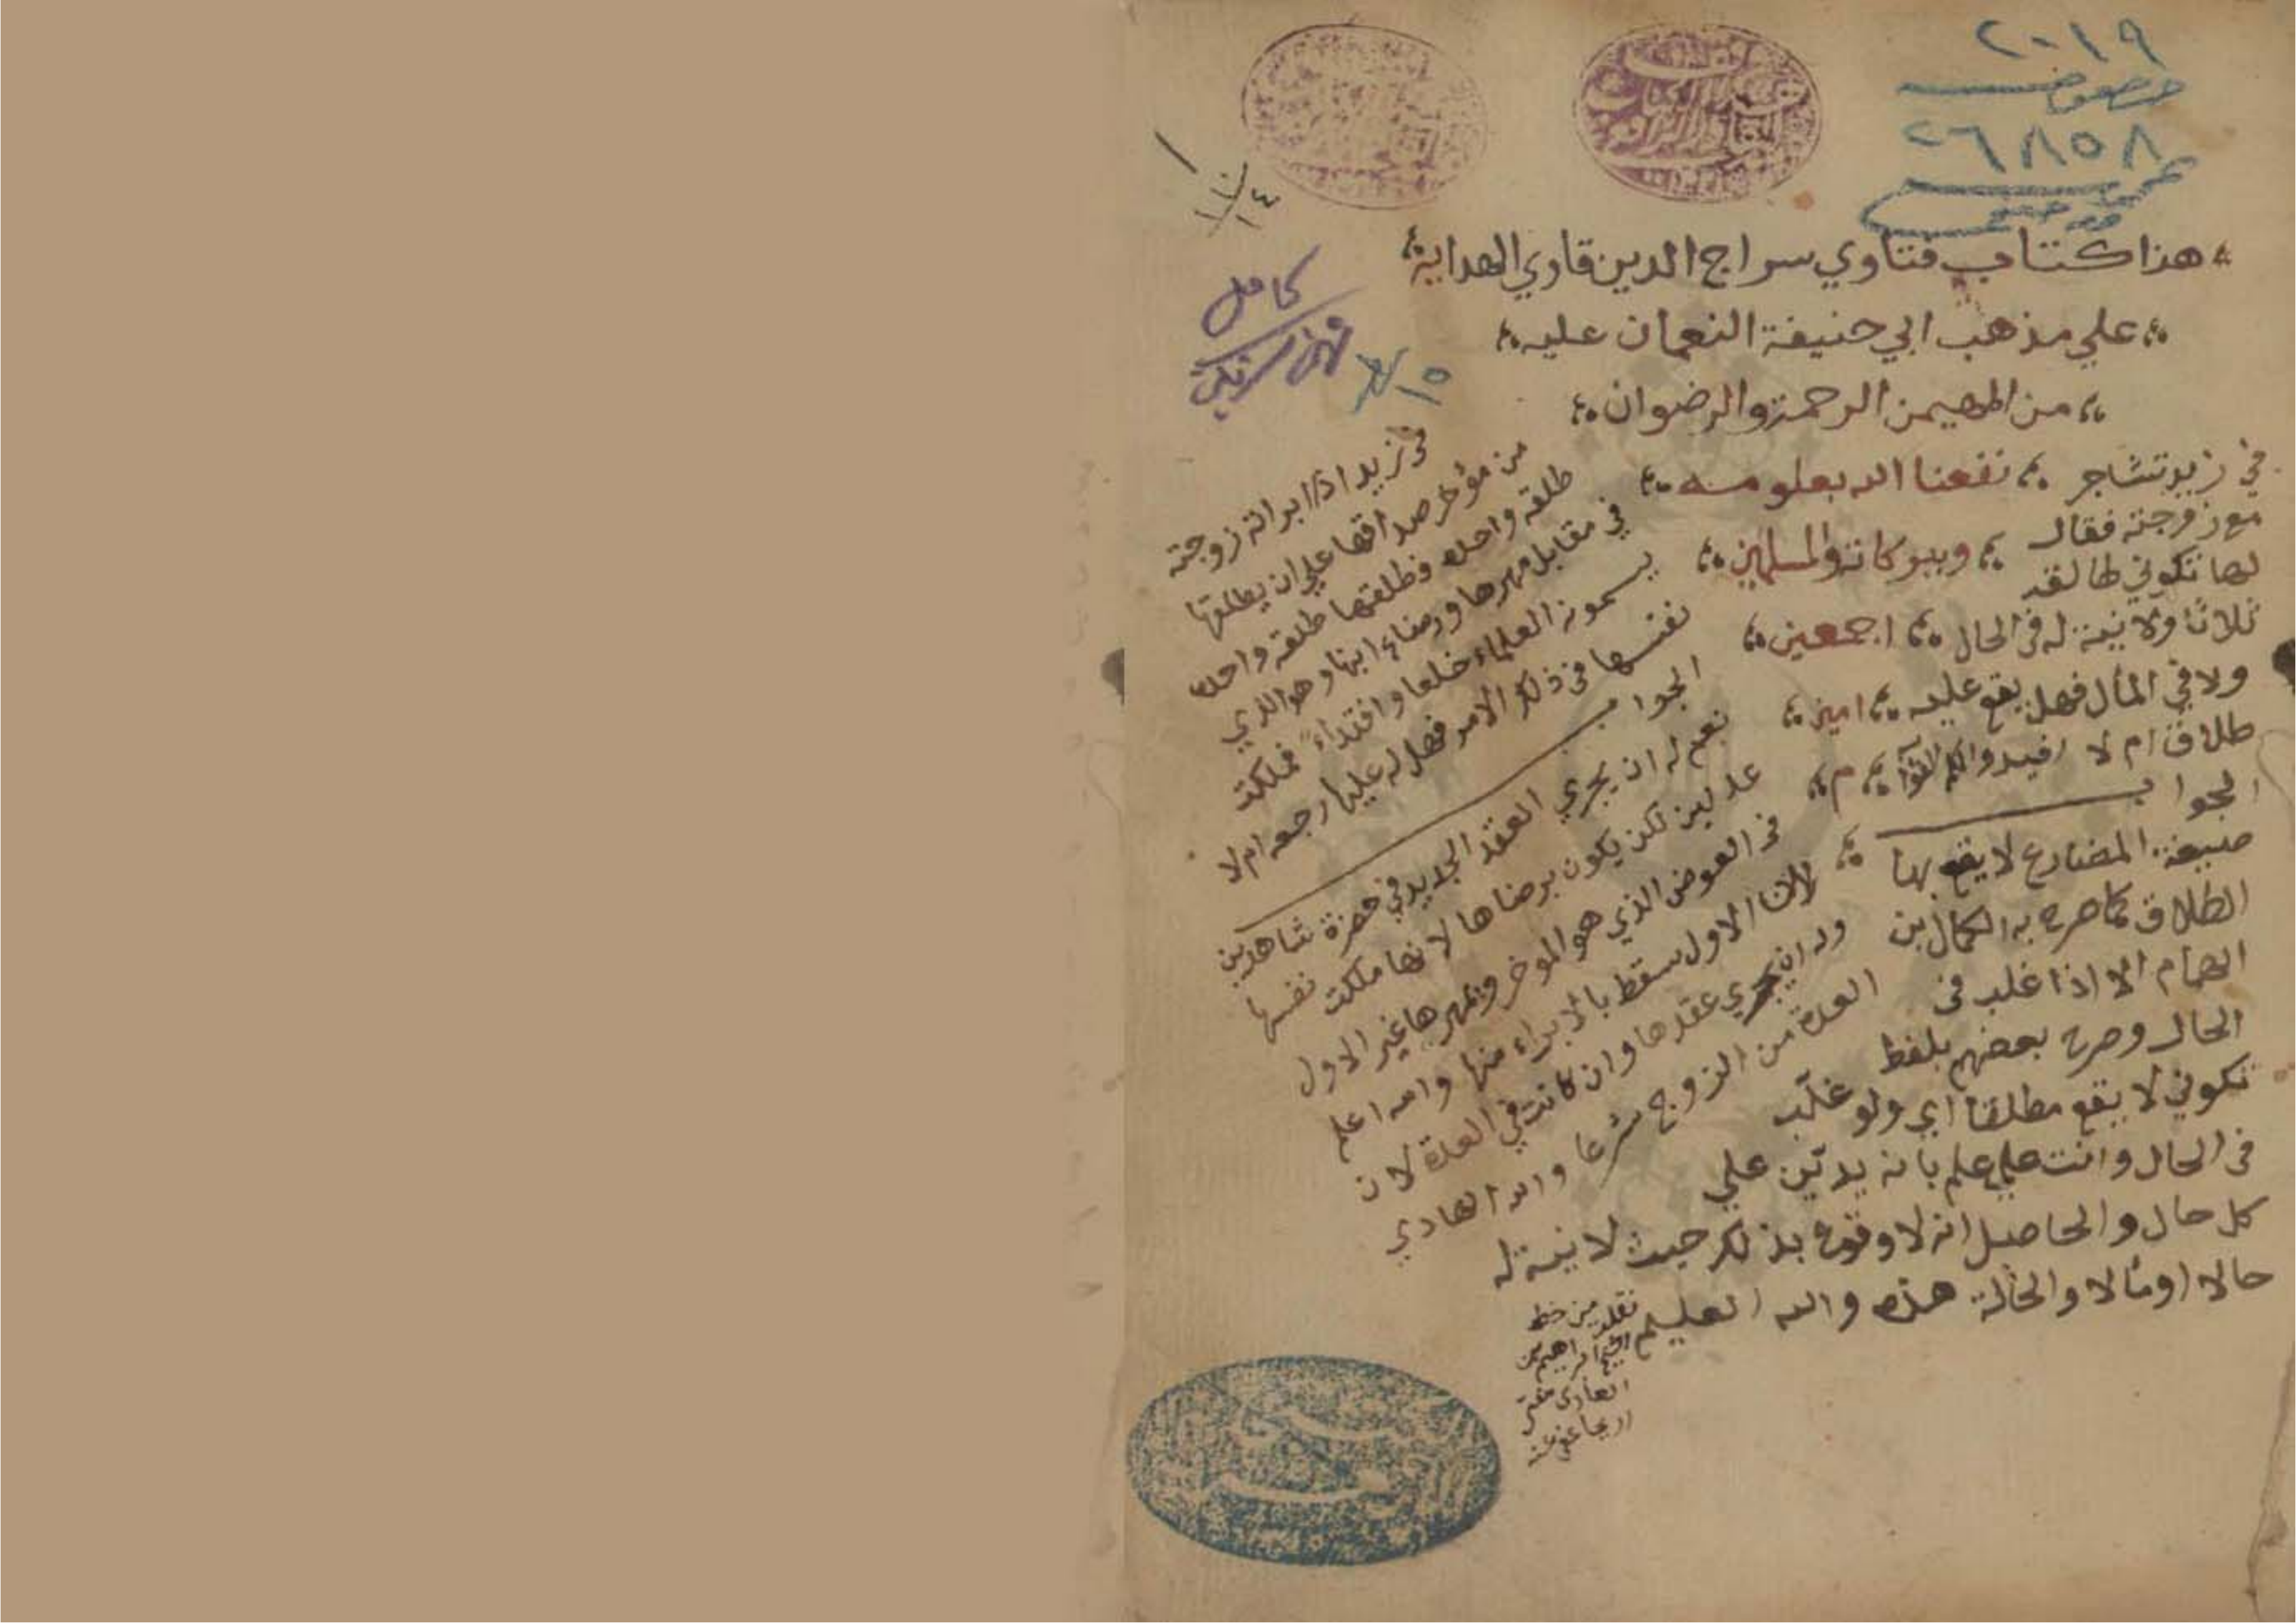 ٢٠١٩
خصوصية
٢٦٨٥٨
عمومية
هذا كتاب فتاوي سراج الدين قاري الهداية
علي مذهب ابي حنيفة النعمان عليه
من المهيمن الرحمة والرضوان
نفعنا الله بعلومه
وببركاته والمسلمين
اجمعين
امين
م
كامل
١٥
في زيد تشاجر
مع زوجته فقال
لها تكوني طالقه
ثلاثا ولا نية له في الحال
ولا في المأل فهل يقع عليه
طلاق ام لا افيدوا
الجواب
صيغة المضارع لا يقع بها
الطلاق كما صرح به الكمال بن
الهمام الا اذا غلب في
الحال وصرح بعضهم بلفظ
تكوني لا يقع مطلقا اي ولو غلب
في الحال وانت علي علم بانه يدين علي
كل حال والحاصل انه لا وقوع بذلك حيث لا نية له
حالا او مألا والحالة هذه والله العليم
نقلته من خط
في زيد اذا ابراته زوجته
من مؤخر صداقها علي ان يطلقها
طلقه واحده فطلقها طلقه واحده
في مقابل مهرها ورضاع ابنها وهو الذي
يسمونه العلماء خلعا وافتداء فملكت
نفسها في ذلك الامر فهل له عليها رجعه ام لا
الجواب
نعم له ان يجري العقد الجديد في حضرة شاهدين
عدلين لكن يكون برضاها لانها ملكت نفسها
في العوض الذي هو الموخر ومهرها غير الاول
لان الاول سقط بالابراء منها والله اعلم
وله ان يجري عقدها وان كانت في العدة لان
العدة من الزوج شرعا والله الهادي